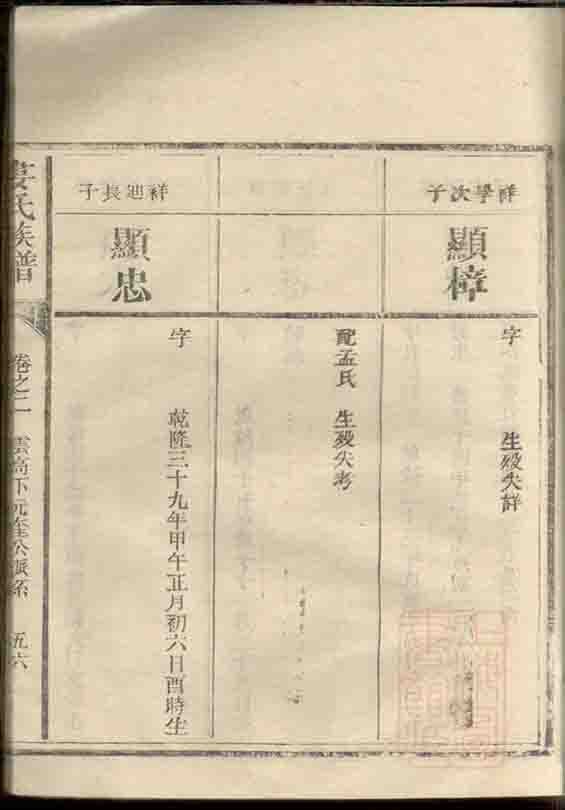 祥學次子
顯樟
字　生歿失詳
配孟氏　生歿失考
祥廸長子
顯忠
字　乾隆三十九年甲午正月初六日酉時生
姜氏族譜
卷之二　雲高下元奎公派系　五六